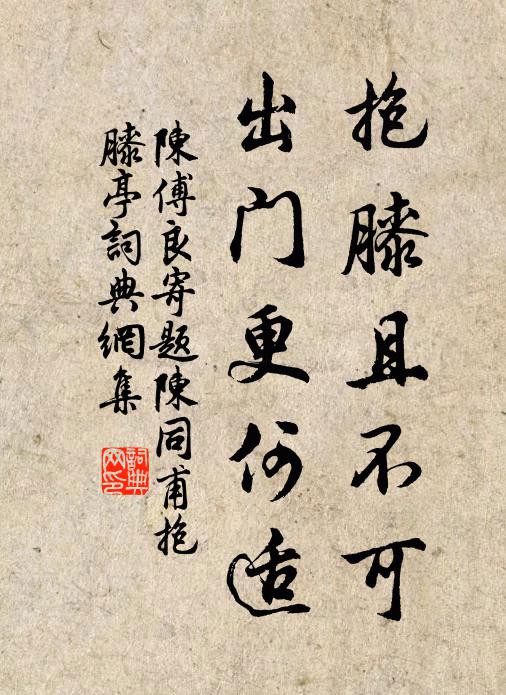 抱膝且不可
出门更何适
陳傅良寄题陳同甫抱
膝亭詞典網集
詞典
网印